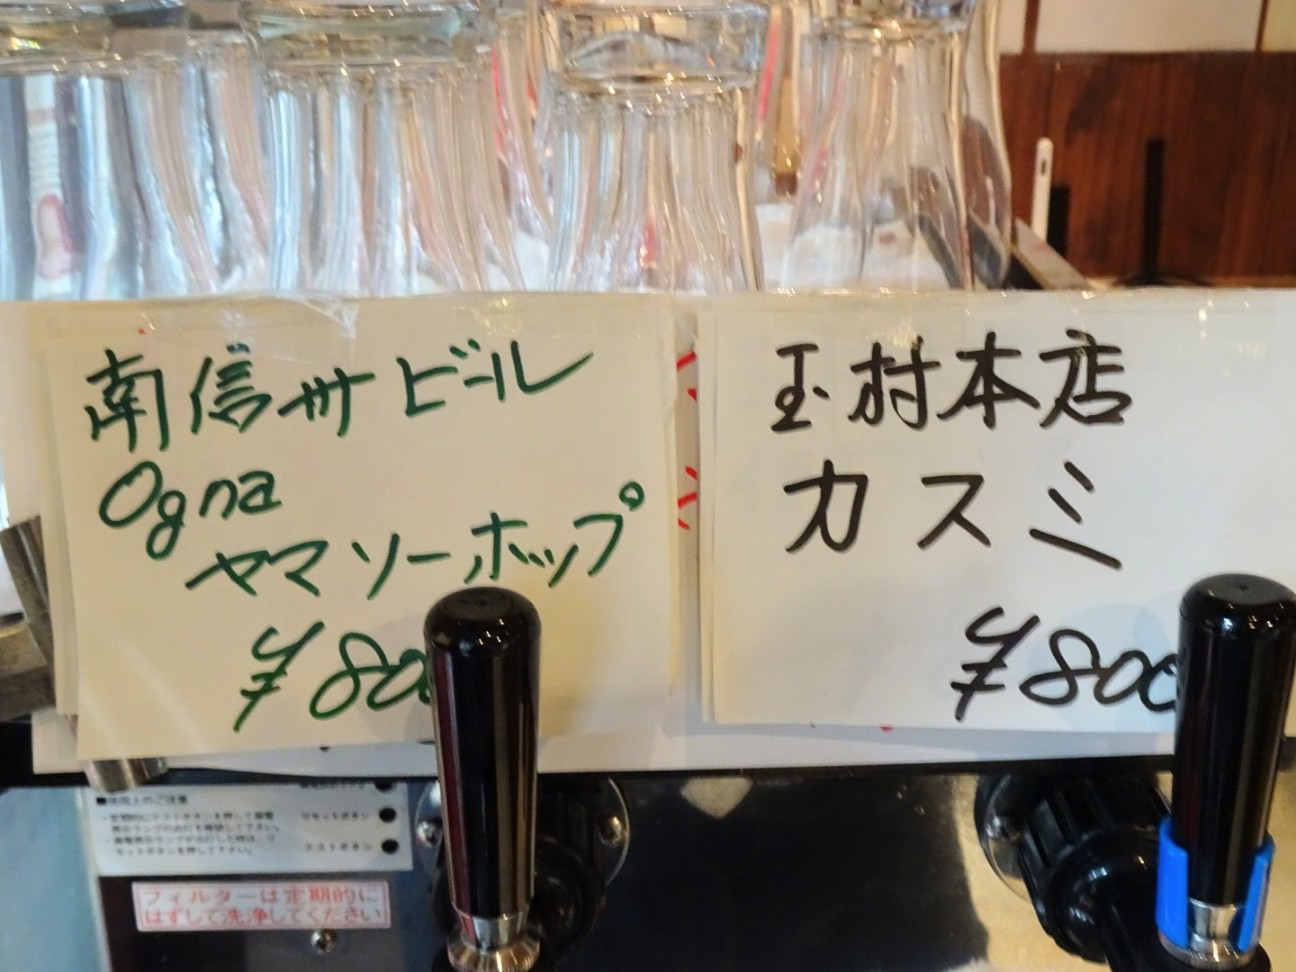 南信州ビール
Ogna
ヤマソーホップ
¥800
玉村本店
カスミ
¥800
■使用上のご注意
リセットボタン
テストボタン
フィルターは定期的に
はずして洗浄してください